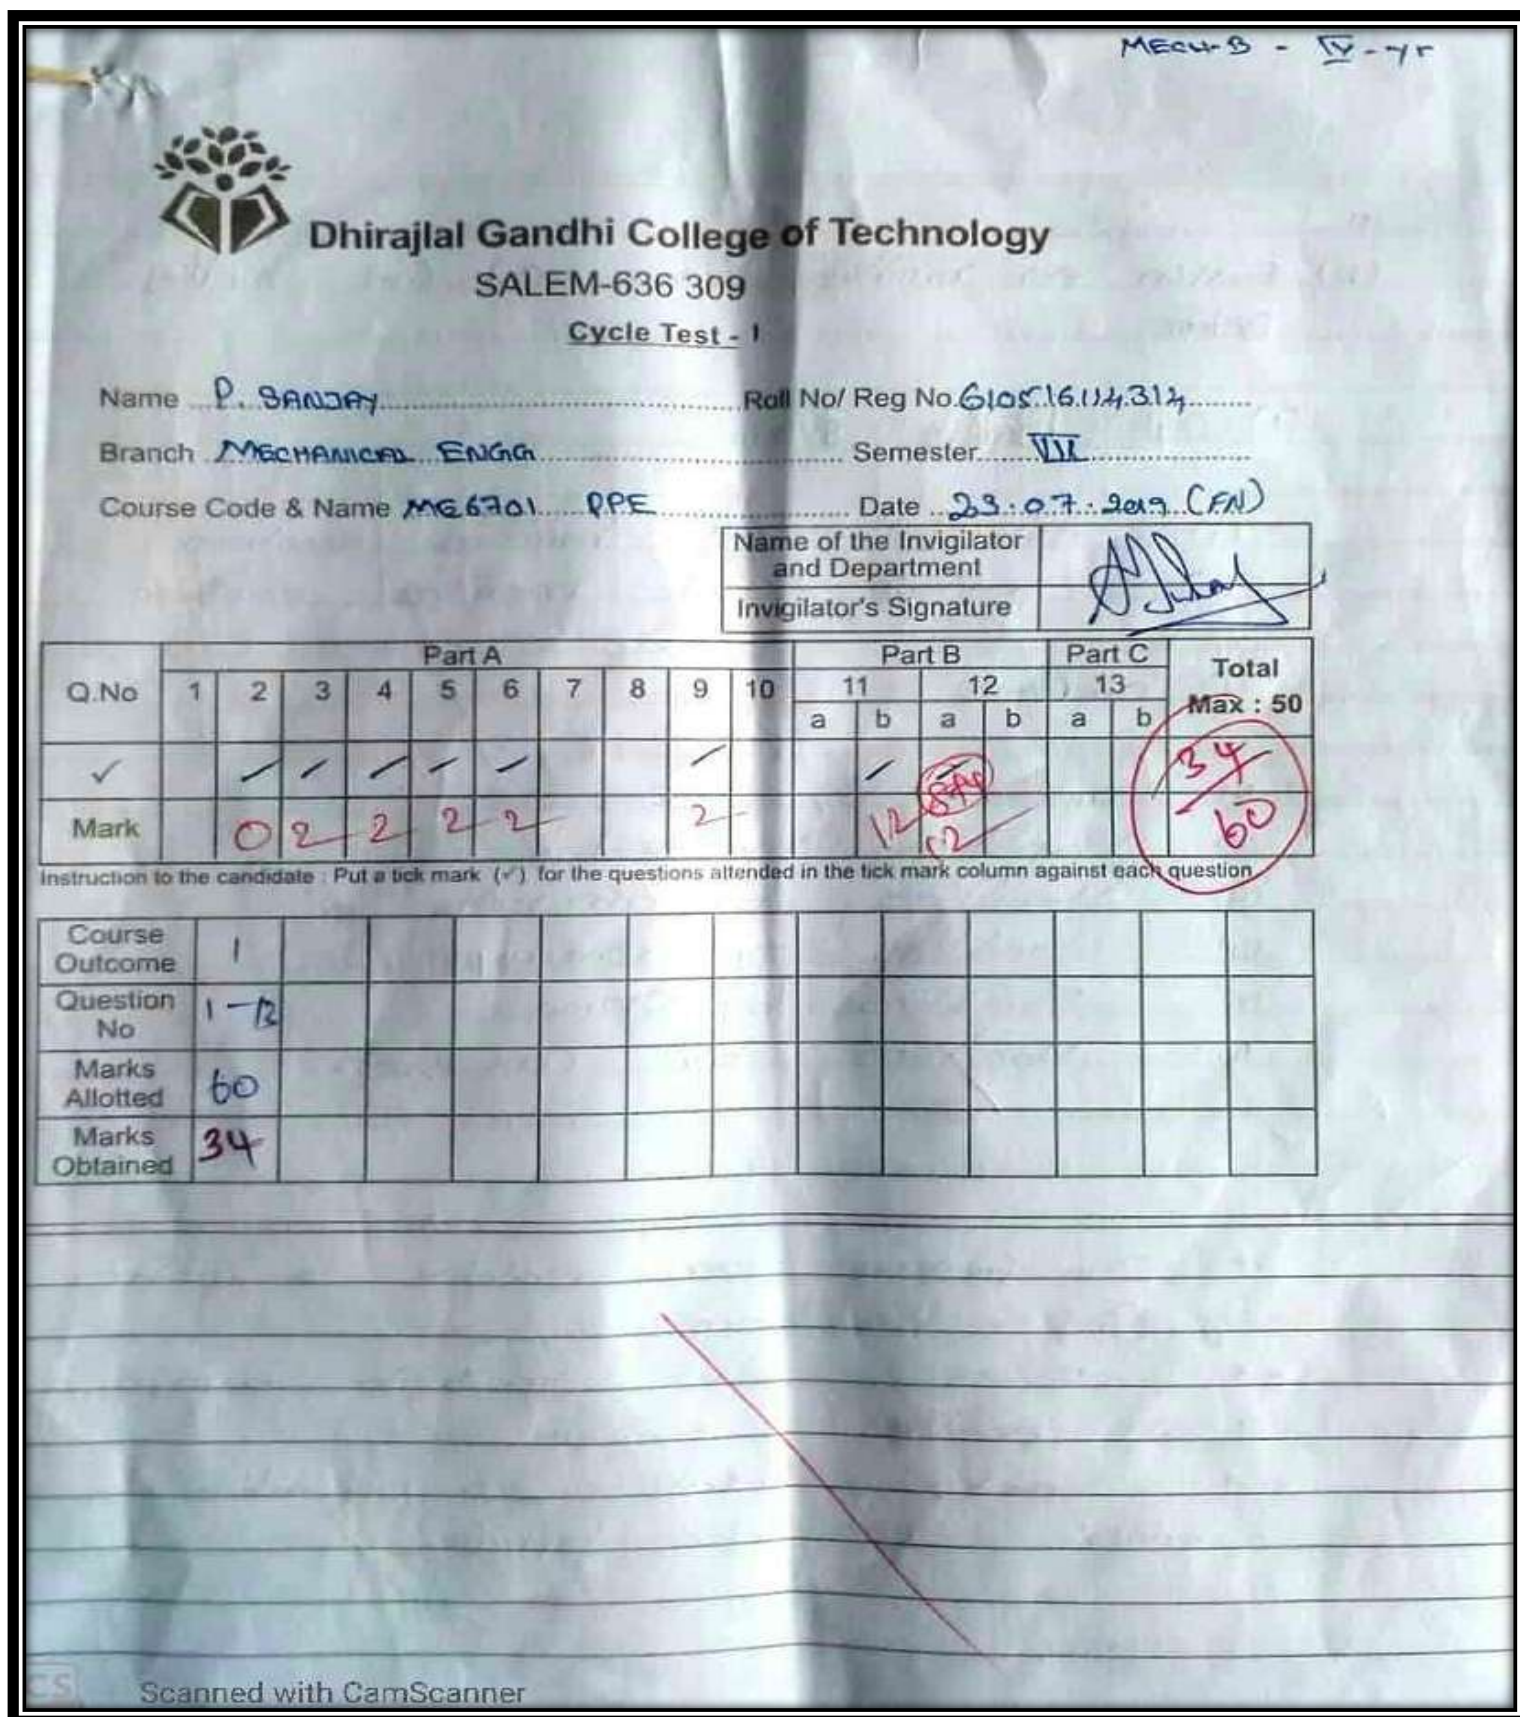 MECH-B - IV-yr
Dhirajlal Gandhi College of Technology
SALEM-636 309
Cycle Test - I
Name P. SANJAY Roll No/ Reg No. 610516114314
Branch MECHANICAL ENGG Semester VII
Course Code & Name ME6701 PPE Date 23.07.2019 (FN)
Name of the Invigilator
and Department
Invigilator's Signature
Part A Part B Part C Total
Max : 50
Q.No 1 2 3 4 5 6 7 8 9 10 11 12 13
a b a b a b
✓ / / / / / / / / 34
Mark 0 2 2 2 2 2 12 12 60
Instruction to the candidate : Put a tick mark (✓) for the questions attended in the tick mark column against each question
Course
Outcome 1
Question
No 1-12
Marks
Allotted 60
Marks
Obtained 34
CS Scanned with CamScanner